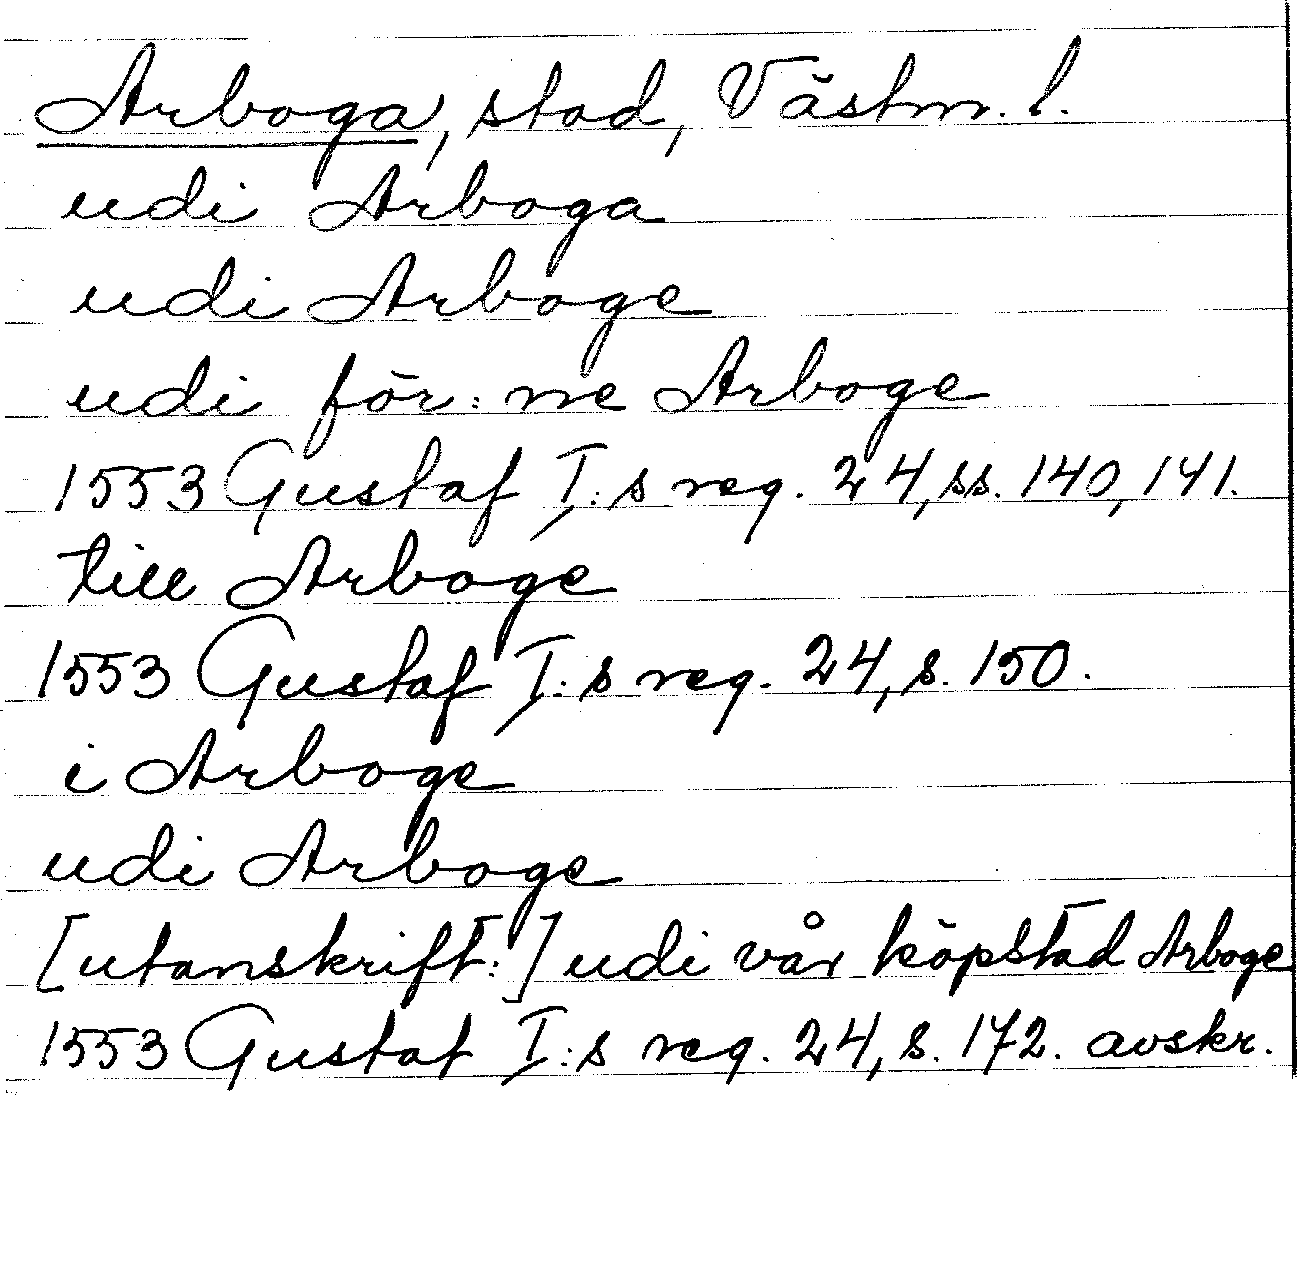 Arboga, stad, Västm. l.
udi Arboga
udi Arboge
udi för: ne Arboge
1553 Gustaf I:s reg. 24, ss. 140, 141.
till Arboge
1553 Gustaf I:s reg. 24, s. 150.
i Arboge
udi Arboge
[utanskrift:] udi vår köpstad Arboge
1553 Gustaf I:s reg. 24, s. 172. avskr.